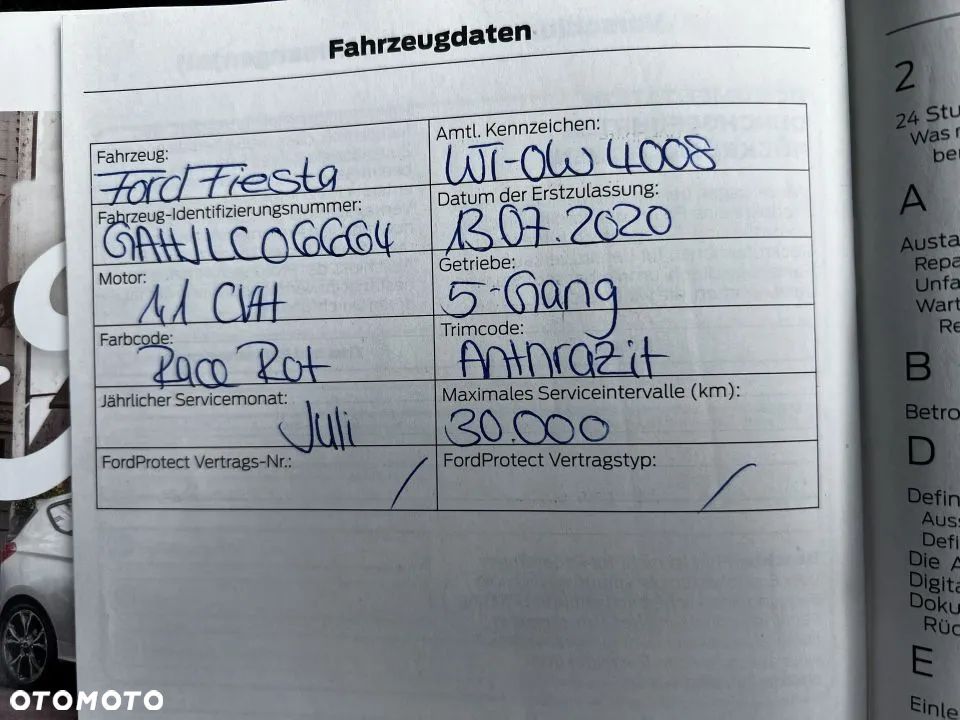 Fahrzeugdaten
Fahrzeug:
Ford Fiesta
Amtl. Kennzeichen:
WT-OW 4008
Fahrzeug-Identifizierungsnummer:
GAHJLC06664
Datum der Erstzulassung:
13 07.2020
Motor:
1,1 CVH
Getriebe:
5-Gang
Farbcode:
Race Rot
Trimcode:
Anthrazit
Jährlicher Servicemonat:
Juli
Maximales Serviceintervalle (km):
30.000
FordProtect Vertrags-Nr.:
/
FordProtect Vertragstyp:
/
2
24 Stu
Was
be
A
Austa
Repa
Unfa
Wart
Re
B
Betro
D
Defin
Aus
Defi
Die A
Digita
Doku
Rüc
E
Einle
OTOMOTO